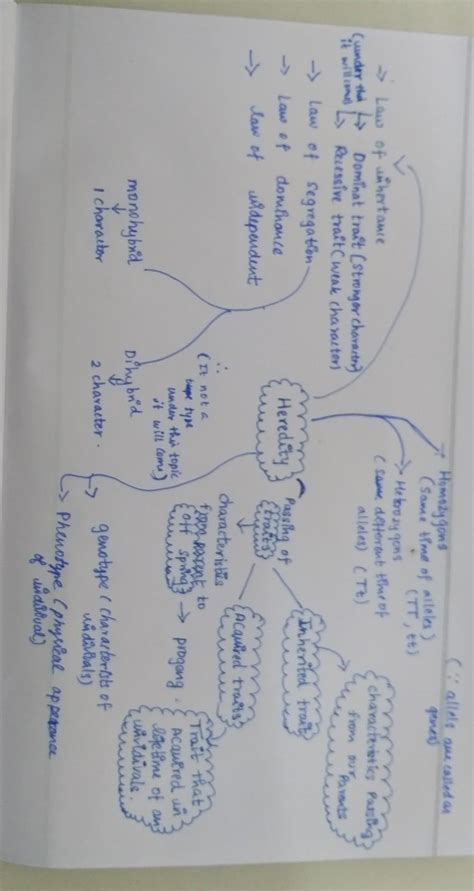 → Law of inhertance
(under this it will come)
↳ Dominat trait (stronger character)
↳ Recessive trait (weak character)
→ Law of segregation
→ Law of dominance
→ law of independent
monohybrid
↓
1 character
Dihybrid
↓
2 character.
∵
(It not a
type
under this topic
it will come)
Heredity
Homozygons
(same time of alleles)
(TT, tt)
Hetrozygons
(same different time of
alleles) (Tt)
(∵ allels are called as
genes)
Passing of
(traits)
↓
characteristics
from parent to
off spring → progany.
Inherited trait
characteristics Passing
from our
Parents
Acquired traits
Trait that
Acquired in
lifetime of an
individals.
↳ genotype (characterists of
individals)
↳ Phenotype (physical apperance
of individal)